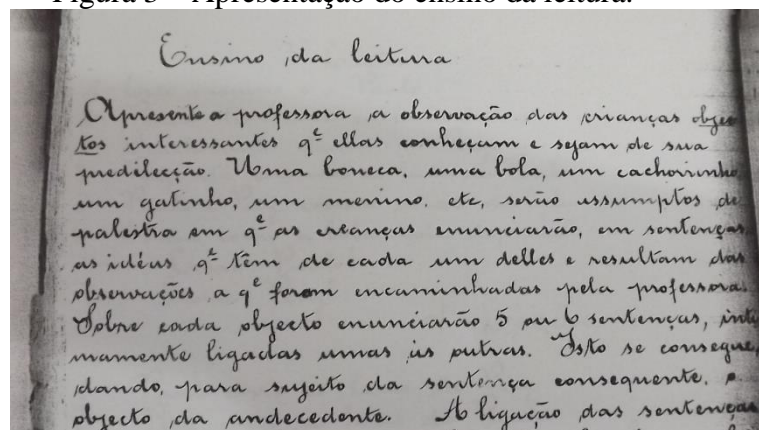 Figura 3 – Apresentação do ensino da leitura.
Ensino da leitura
Apresente a professora a observação das crianças objec
tos interessantes qᵉ ellas conheçam e sejam de sua
predilecção. Uma boneca, uma bola, um cachorrinho
um gatinho, um menino, etc, serão assumptos de
palestra em qᵉ as creanças enunciarão, em sentenças
as idéas qᵉ têm de cada um delles e resultam das
observações a qᵉ foram encaminhadas pela professora.
Sobre cada objecto enunciarão 5 ou 6 sentenças, inti
mamente ligadas umas ás outras. Isto se consegue,
dando, para sujeito da sentença consequente, o
objecto da andecedente. A ligação das sentenças